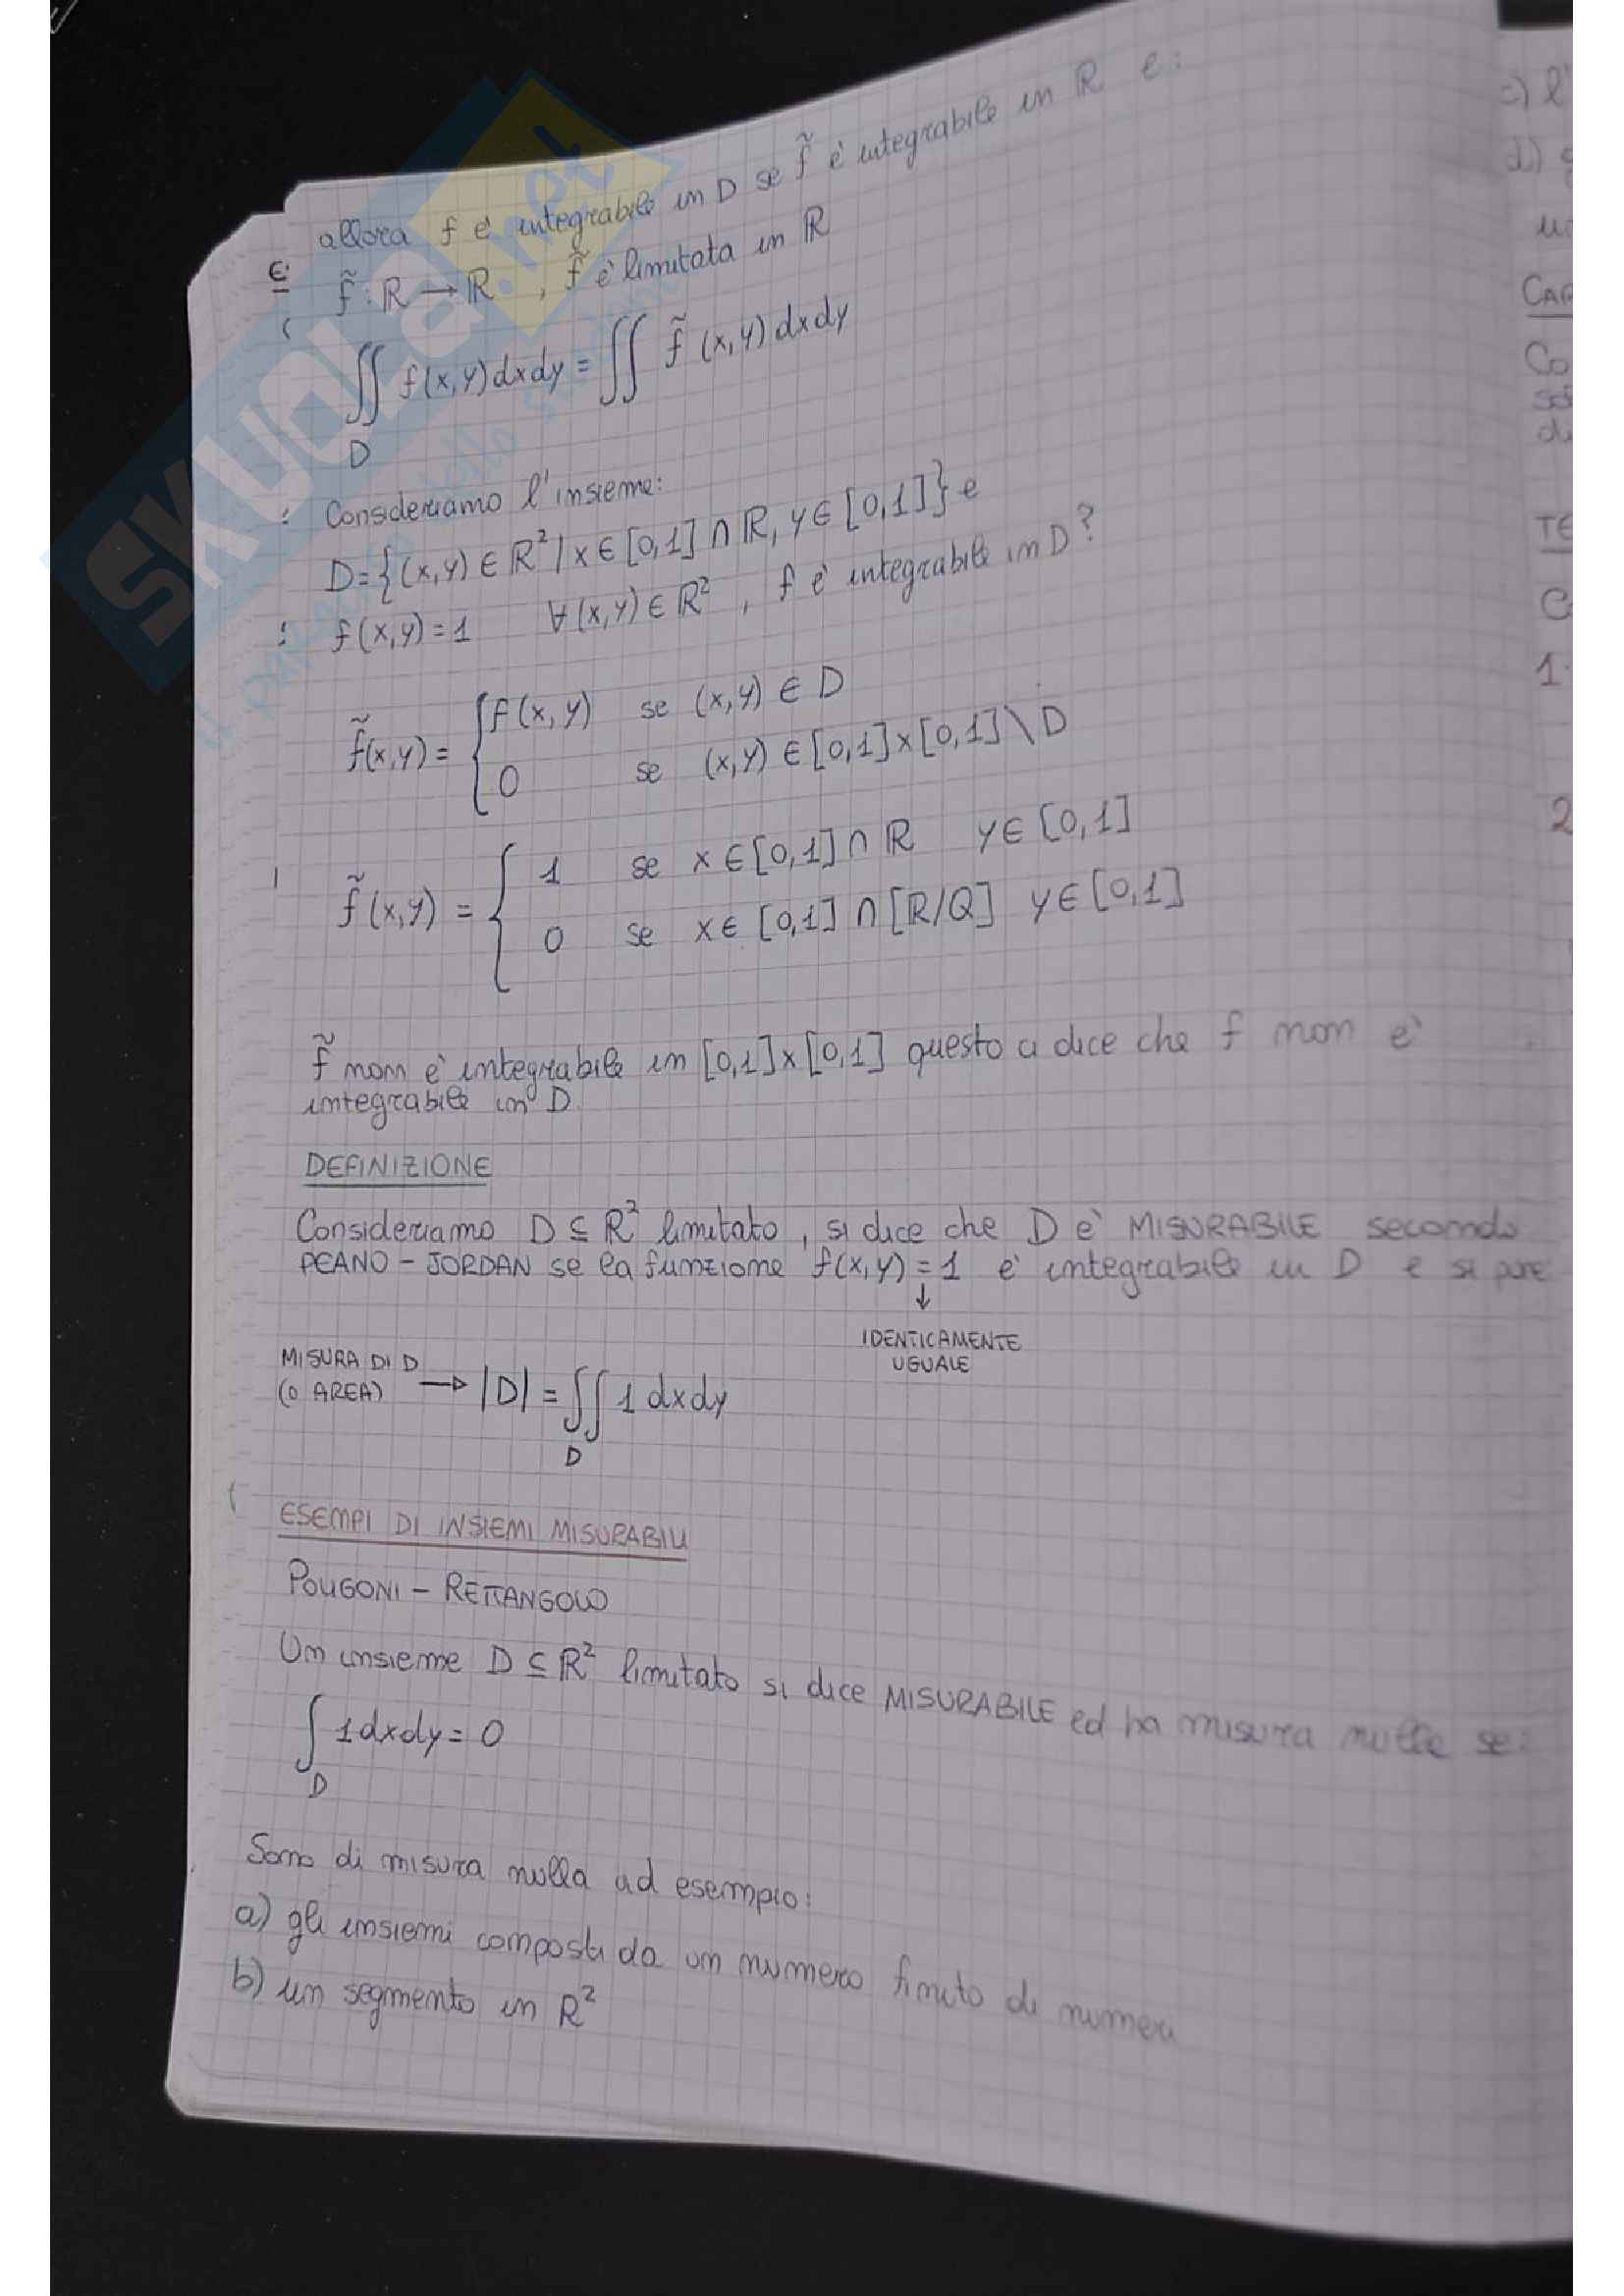 allora f è integrabile in D se f̃ è integrabile in R e:
f̃: R → R , f̃ è limitata in R
∬ f(x,y)dxdy = ∬ f̃(x,y)dxdy
D
Consideriamo l'insieme:
D={(x,y) ∈ R² | x ∈ [0,1] ∩ R, y ∈ [0,1]} e
f(x,y)=1 ∀(x,y) ∈ R² , f è integrabile in D?
f̃(x,y) = { f(x,y) se (x,y) ∈ D
0 se (x,y) ∈ [0,1]x[0,1] \ D
f̃(x,y) = { 1 se x ∈ [0,1] ∩ R y ∈ [0,1]
0 se x ∈ [0,1] ∩ [R/Q] y ∈ [0,1]
f̃ non è integrabile in [0,1]x[0,1] questo ci dice che f non è
integrabile in D
DEFINIZIONE
Consideriamo D ⊆ R² limitato, si dice che D è MISURABILE secondo
PEANO - JORDAN se la funzione f(x,y) = 1 è integrabile in D e si pone
↓
IDENTICAMENTE
UGUALE
MISURA DI D
(O AREA) → |D| = ∬ 1 dxdy
D
ESEMPI DI INSIEMI MISURABILI
POLIGONI - RETTANGOLO
Un insieme D ⊆ R² limitato si dice MISURABILE ed ha misura nulla se:
∫ 1dxdy = 0
D
Sono di misura nulla ad esempio:
a) gli insiemi composti da un numero finito di numeri
b) un segmento in R²
c) l'
d)
CAR
Co
TE
C
1
2
SKUOLA.net